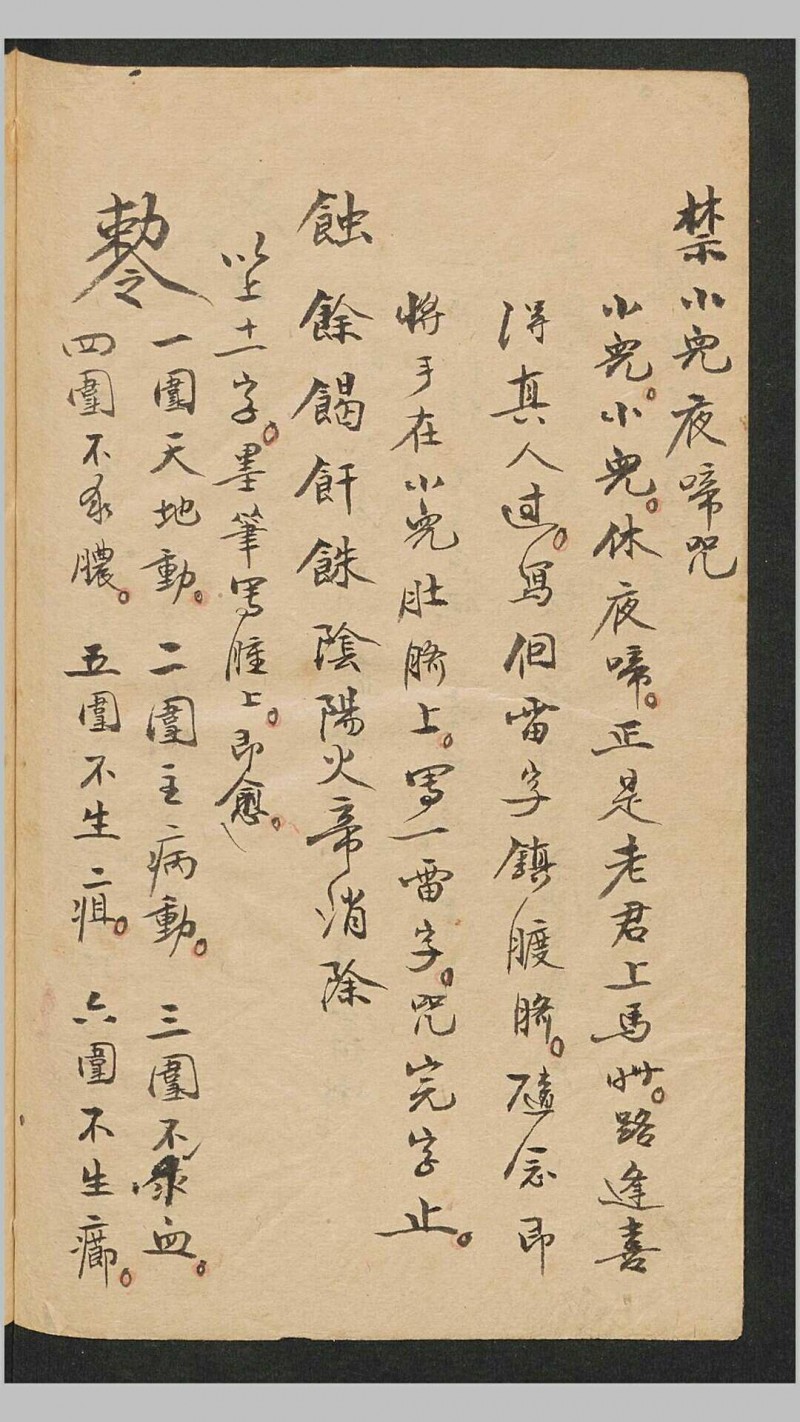 禁小兒夜啼咒
小兒。小兒。休夜啼。正是老君上馬卅。路逢喜
得真人过。寫個雷字鎮腹臍。隨念即
將手在小兒肚臍上。写一雷字。咒完字止。
蝕餘餲飦餗陰陽火帝消除
以上十一字。墨筆写腫上。即愈。
敕令 一圍天地動。二圍主病動。三圍不血。
四圍不成膿。五圍不生疽。六圍不生癤。